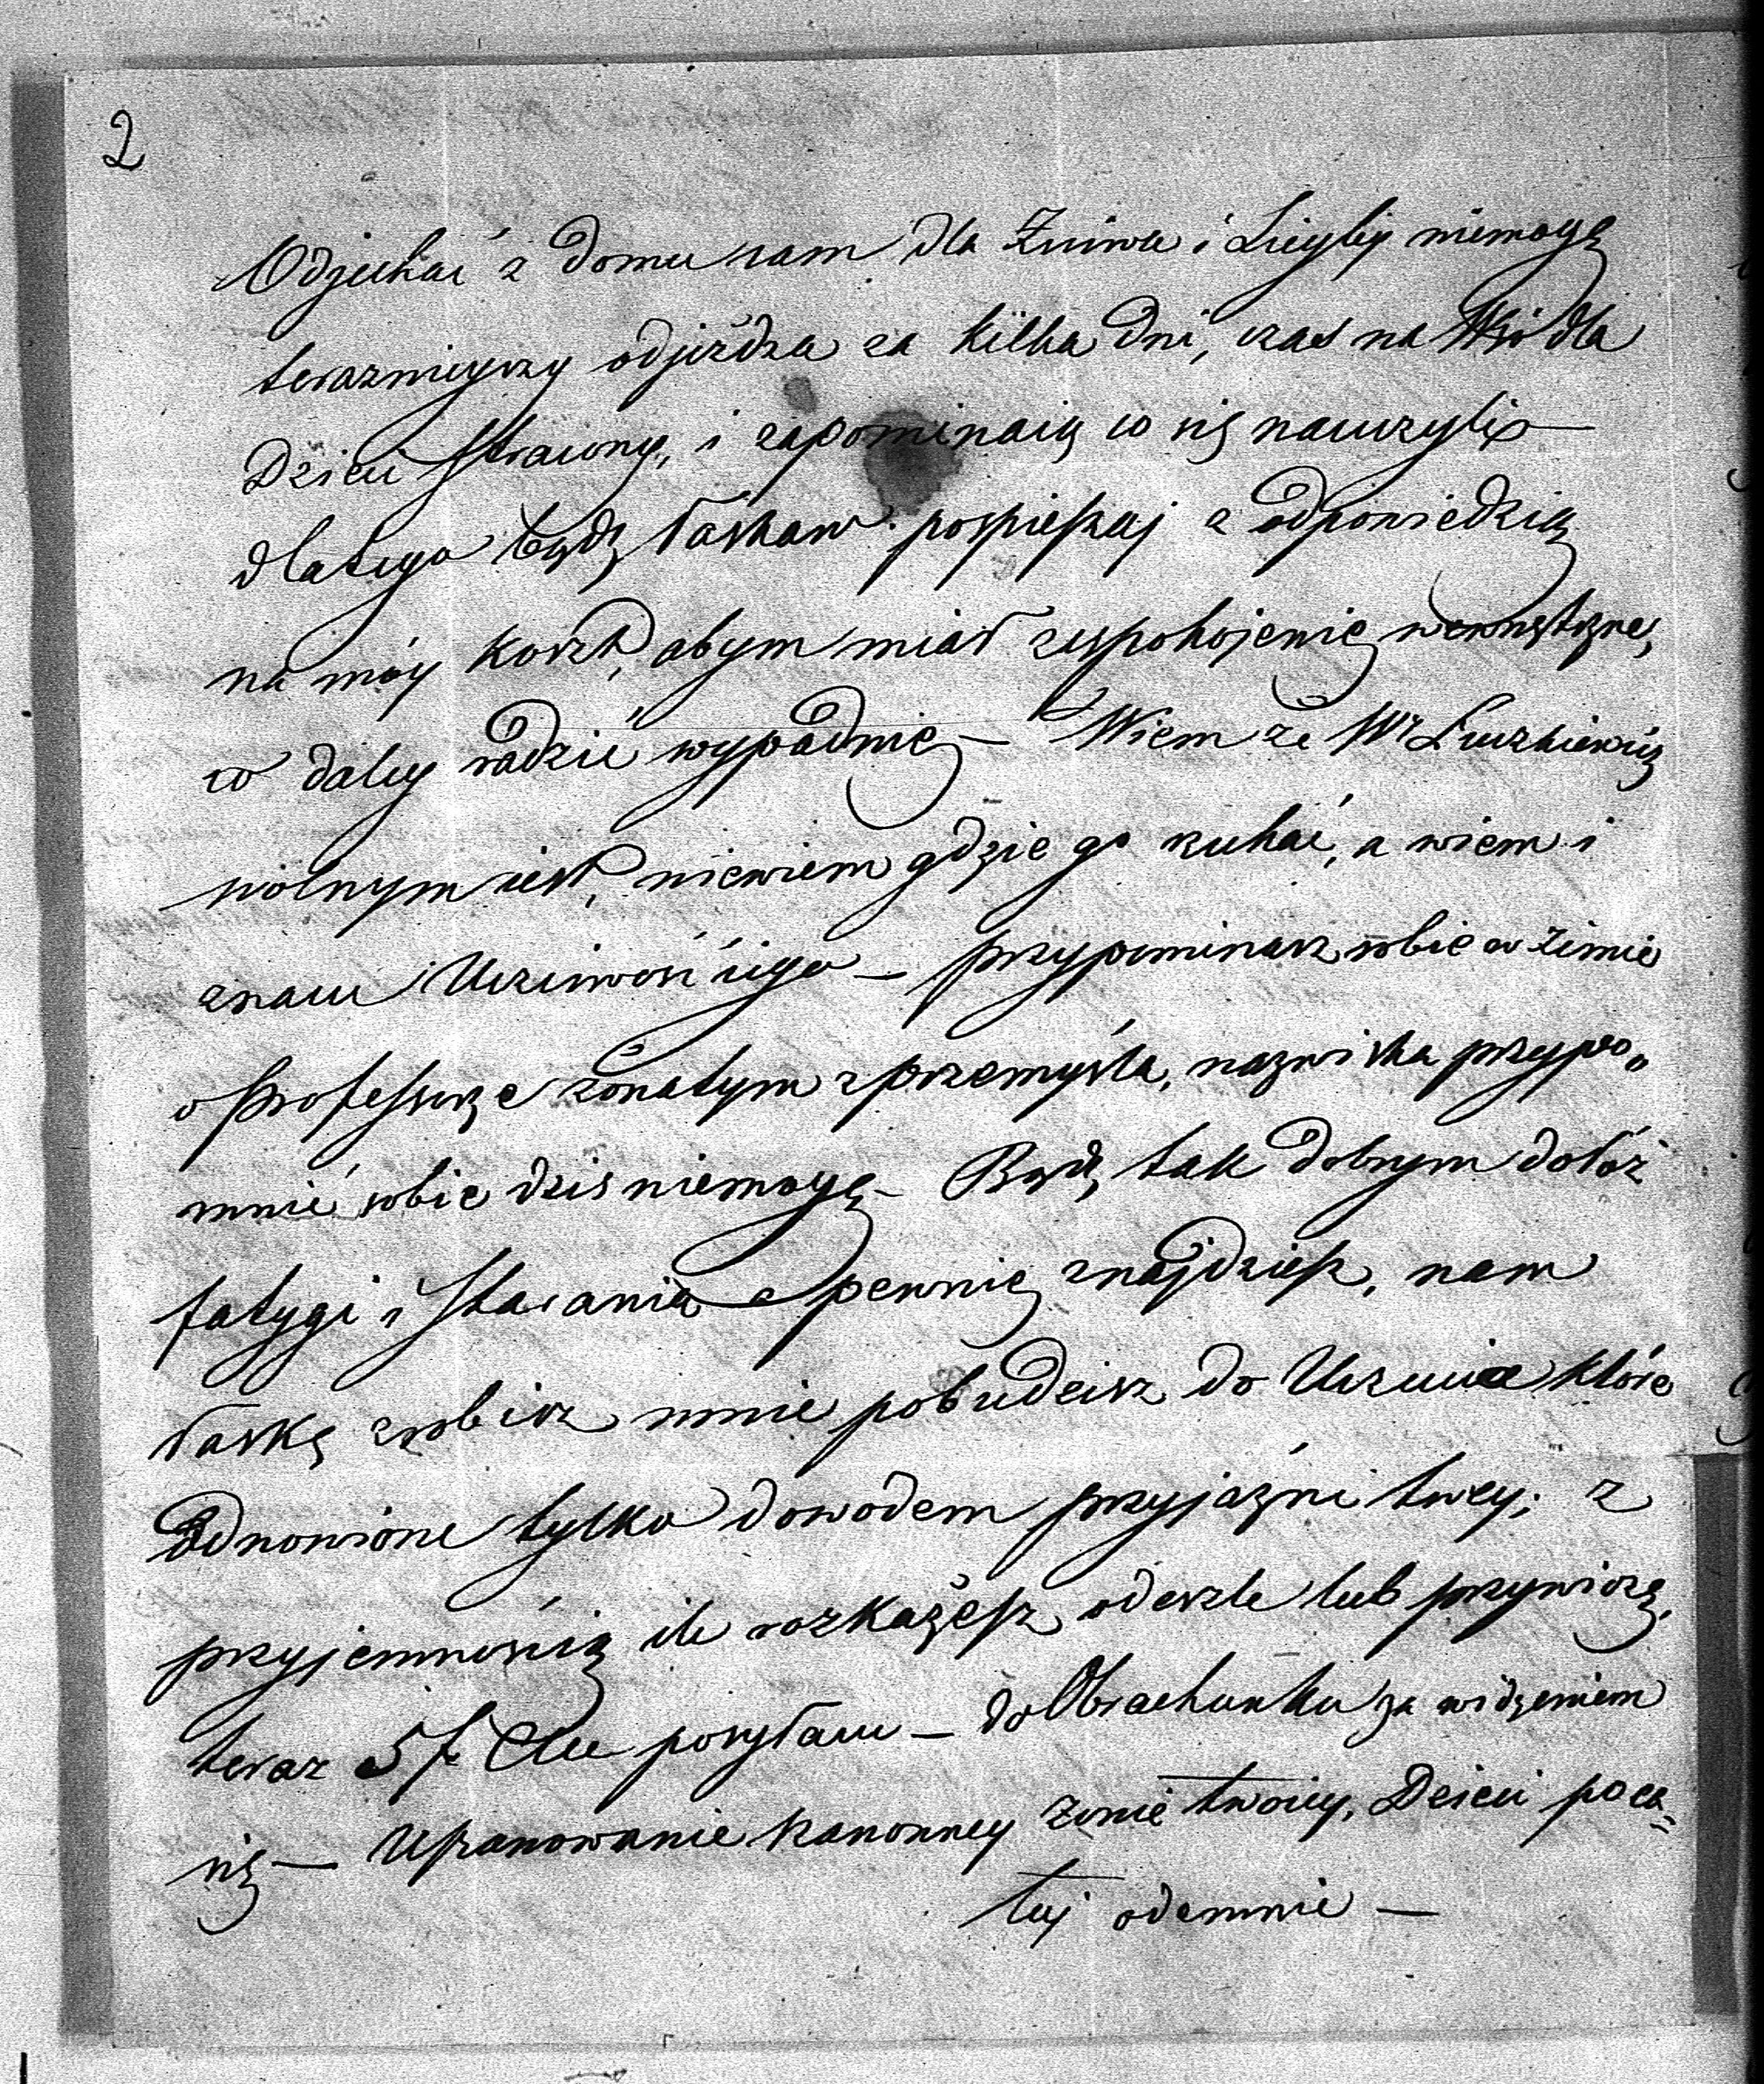 2
Odjechać z domu sam dla Żniwa i niemogę
teraznieyszy odjeżdża za kilka dni, czas na Wsi dla
Dzieci stracony, i zapominaią co się nauczyli –
dlatego bądź łaskaw pospieszaj z odpowiedzią
na móy koszt, abym miał zespokojenie wewnętrzne,
co daley radzić wypadnie – Wiem że Wr
wolnym iest, niewiem gdzie go szukać, a wiem i
znam Uczciwość iego – przypominasz sobie w zimie
o Professorze żonatym z przemyśla, nazwiska przypo„
mnieć sobie dzis niemogę – Bądź tak dobrym dołóż
fatygi i starania a pewnie znajdziesz, nam
łaskę zrobisz mnie pobudzisz do Uczucia które
Odnowione tylko dowodem przyjaźni twey; z
przyjemnością ile rozkażesz odeszle lub przywiozę,
teraz 5 f posyłam – do Obrachunku za widzeniem
się – Uszanowanie szanowney żonie twoiey, Dzieci poca=
łuj odemnie –